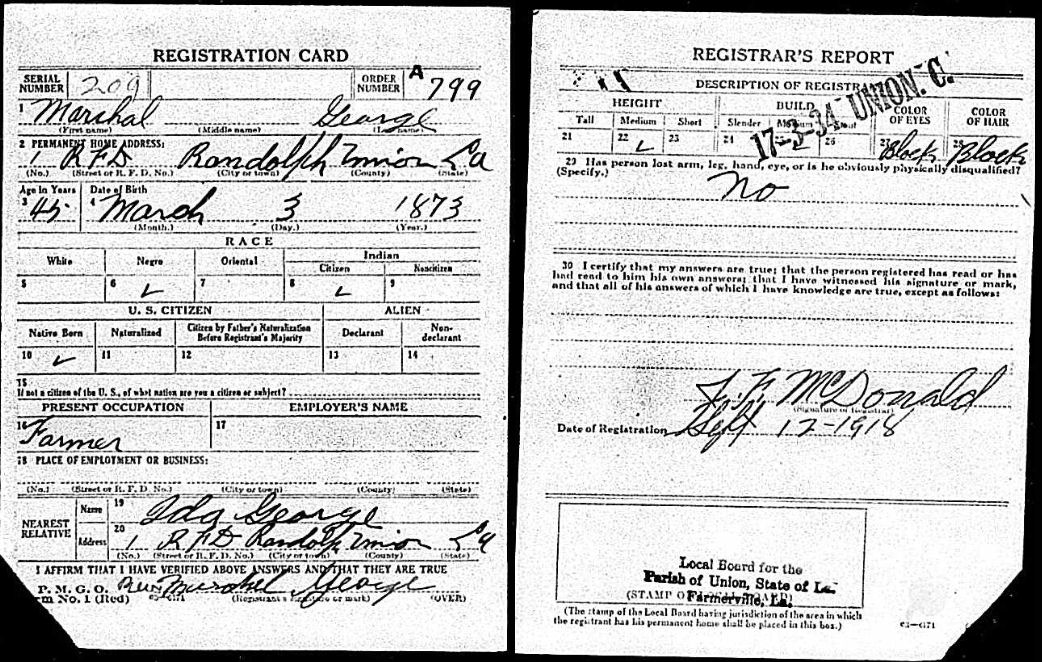 REGISTRATION CARD
SERIAL NUMBER 209 ORDER NUMBER A 799
1 Marshal George
(First name) (Middle name) (Last name)
2 PERMANENT HOME ADDRESS:
1 R.F.D Randolph Union La
(No.) (Street or R. F. D. No.) (City or town) (County) (State)
Age in Years Date of Birth
3 45 4 March 3 1873
(Month.) (Day.) (Year.)
RACE
White Negro Oriental Indian
Citizen Noncitizen
5 6 ✓ 7 8 ✓ 9
U. S. CITIZEN ALIEN
Native Born Naturalized Citizen by Father's Naturalization Before Registrant's Majority Declarant Non-declarant
10 ✓ 11 12 13 14
15
If not a citizen of the U. S., of what nation are you a citizen or subject?
PRESENT OCCUPATION EMPLOYER'S NAME
16 Farmer 17
18 PLACE OF EMPLOYMENT OR BUSINESS:
(No.) (Street or R. F. D. No.) (City or town) (County) (State)
NEAREST RELATIVE Name 19 Ida George
Address 20 1 R.F.D Randolph Union La
(No.) (Street or R. F. D. No.) (City or town) (County) (State)
I AFFIRM THAT I HAVE VERIFIED ABOVE ANSWERS AND THAT THEY ARE TRUE
P. M. G. O. Marshel George
m No. 1 (Red) (Registrant's signature or mark) (OVER)
REGISTRAR'S REPORT
DESCRIPTION OF REGISTR
HEIGHT BUILD COLOR OF EYES COLOR OF HAIR
Tall Medium Short Slender Medium
21 22 ✓ 23 24 25 ✓ 26 27 Black 28 Black
17-3-34 UNION. C.
29 Has person lost arm, leg, hand, eye, or is he obviously physically disqualified?
(Specify.) No
30 I certify that my answers are true; that the person registered has read or has
had read to him his own answers; that I have witnessed his signature or mark,
and that all of his answers of which I have knowledge are true, except as follows:
McDonald
(Signature of Registrar)
Date of Registration Sept 12-1918
Local Board for the
Parish of Union, State of La.
(STAMP OF LOCAL BOARD)
Farmerville, La.
(The stamp of the Local Board having jurisdiction of the area in which
the registrant has his permanent home shall be placed in this box.)
03—6171